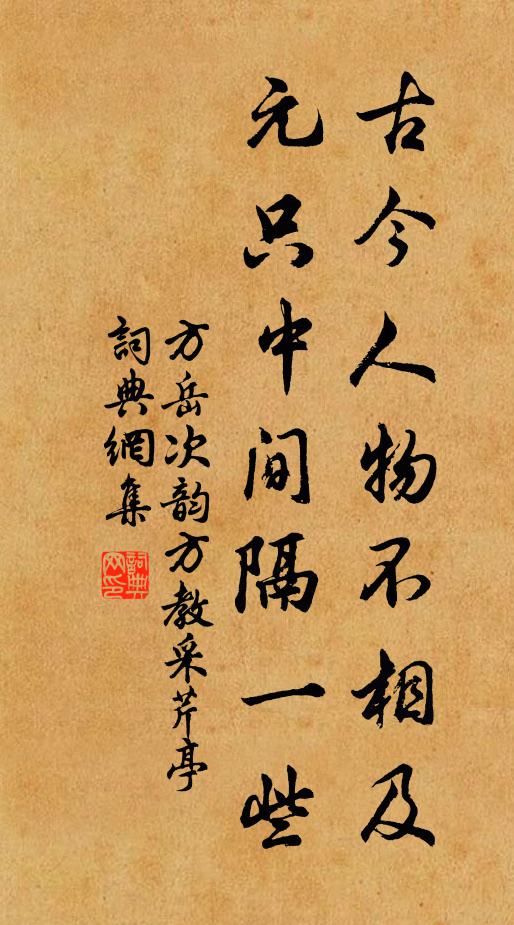 古今人物不相及
元只中间隔一些
方岳次韵方教采芹亭
詞典網集
詞典网印